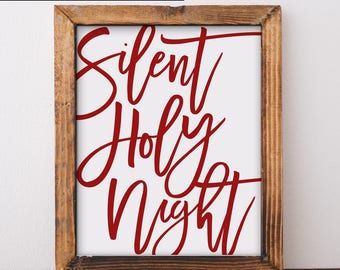 Silent
Holy
Night